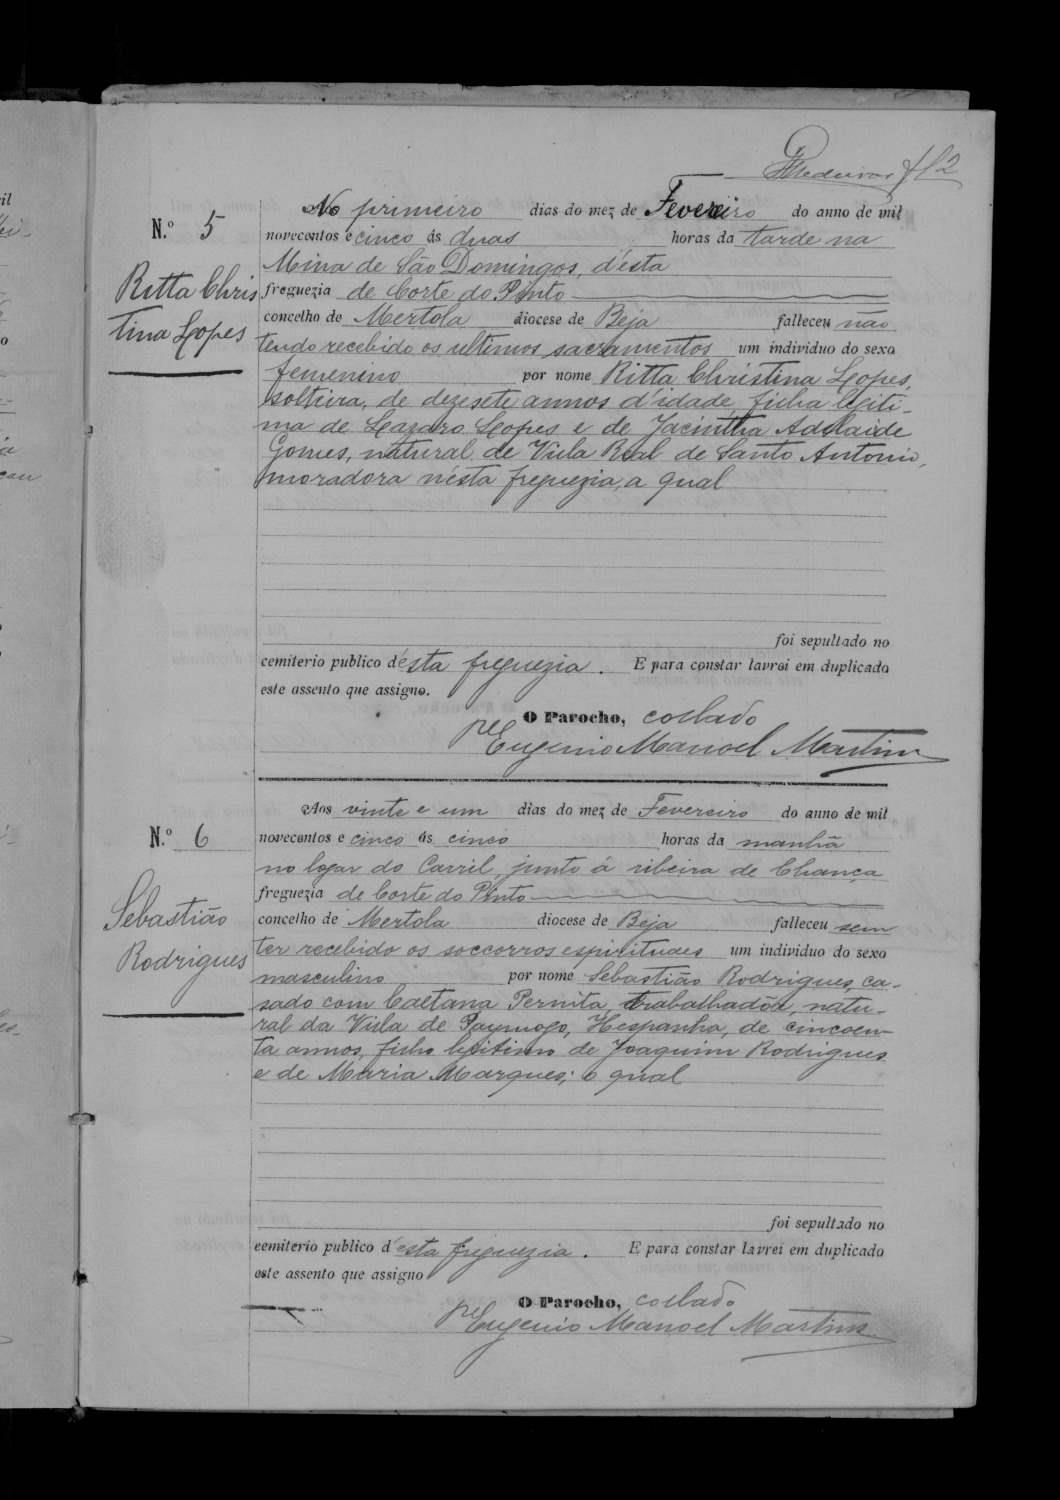 Medeiros fl2
N.º 5
Ritta Chris
tina Lopes
No primeiro dias do mez de Fevereiro do anno de mil
novecentos e cinco ás duas horas da tarde na
Mina de São Domingos, d'ésta
freguezia de Corte do Pinto
concelho de Mertola diocese de Beja falleceu não
tendo recebido os ultimos sacramentos um individuo do sexo
femenino por nome Ritta Christina Lopes,
solteira, de dezesete annos d'idade, filha legiti-
ma de Lazaro Lopes e de Jacintha Adelaide
Gomes, natural de Villa Real de Santo Antonio,
moradora n'ésta freguezia, a qual
foi sepultado no
cemiterio publico d'ésta freguezia. E para constar lavrei em duplicado
este assento que assigno.
O Parocho, collado
Pe Eugenio Manoel Martins
N.º 6
Sebastião
Rodrigues
Aos vinte e um dias do mez de Fevereiro do anno de mil
novecentos e cinco ás cinco horas da manhã
no logar do Carril, junto á ribeira de Chança
freguezia de Corte do Pinto
concelho de Mertola diocese de Beja falleceu sem
ter recebido os soccorros espirituaes um individuo do sexo
masculino por nome Sebastião Rodrigues, ca-
sado com Caetana Pernita, trabalhador, natu-
ral da Villa de Paymogo, Hespanha, de cincoen-
ta annos, filho legitimo de Joaquim Rodrigues
e de Maria Marques; o qual
foi sepultado no
cemiterio publico d'esta freguezia. E para constar lavrei em duplicado
este assento que assigno
O Parocho, collado
Pe Eugenio Manoel Martins